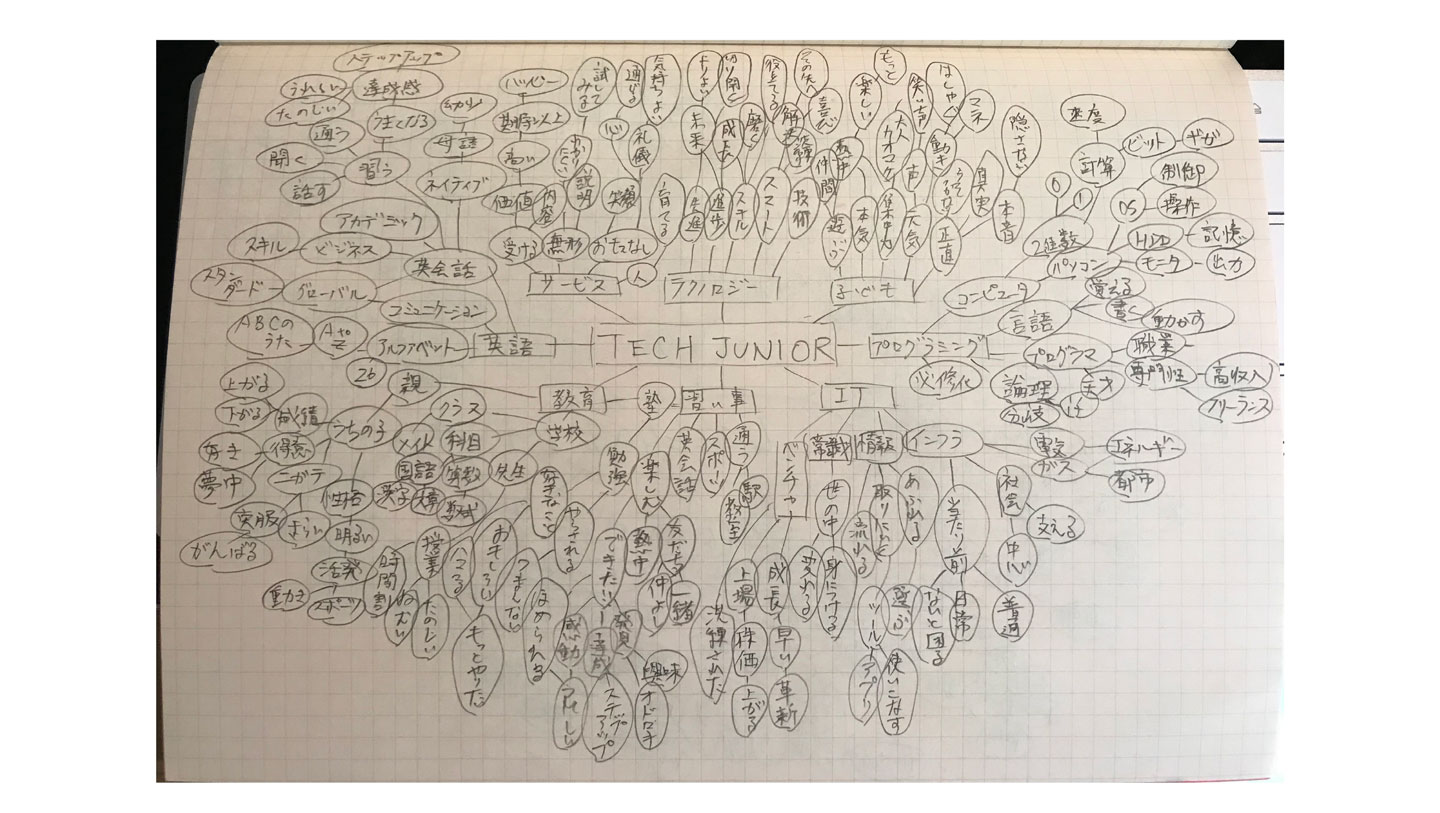 TECH JUNIOR
サービス
人
おもてなし
笑顔
礼儀
気持ちよい
心
通じる
無形
説明
わかりにくい
試してみる
受ける
内容
価値
高い
期待以上
ハッピー
テクノロジー
育てる
先進
未来
よりよい
進歩
成長
切り開く
スキル
磨く
スマート
役立てる
技術
解決
子ども
遊ぶ
仲間
熱中
喜び
本気
楽しい
もっと
集中力
大人
元気
声
笑い声
正直
動き
はしゃぐ
マネ
真実
本音
隠さない
プログラミング
必修化
コンピュータ
2進数
0
1
計算
速度
ビット
ギガ
パソコン
OS
制御
操作
HDD
記憶
モニタ
出力
言語
覚える
書く
動かす
プログラマ
職業
専門性
高収入
フリーランス
天才
論理
分岐
if
英語
英会話
ネイティブ
母語
幼少
習う
うまくなる
達成感
ステップアップ
うれしい
たのしい
通う
聞く
話す
アカデミック
ビジネス
スキル
グローバル
スタンダード
コミュニケーション
アルファベット
A to Z
ABCのうた
26
教育
親
うちの子
成績
上がる
下がる
得意
好き
夢中
ニガテ
克服
がんばる
性格
明るい
活発
スポーツ
動き
学校
クラス
科目
国語
漢字
算数
先生
授業
時間割
ねむい
たのしい
塾
勉強
好きなこと
おもしろい
もっとやりたい
やらされる
つまらない
習い事
楽しむ
熱中
できた!
ほめられる
感動
うれしい
発見
達成
ステップアップ
興味
友だち
仲よし
一緒
英会話
スポーツ
通う
駅
教室
IT
ベンチャー
洗練された
上場
株価
上がる
成長
早い
革新
常識
世の中
変わる
身につける
情報
取りにいく
流れる
あふれる
選ぶ
ツール
アプリ
使いこなす
インフラ
当たり前
ないと困る
日常
普通
社会
中心
支える
電気
ガス
エネルギー
都市